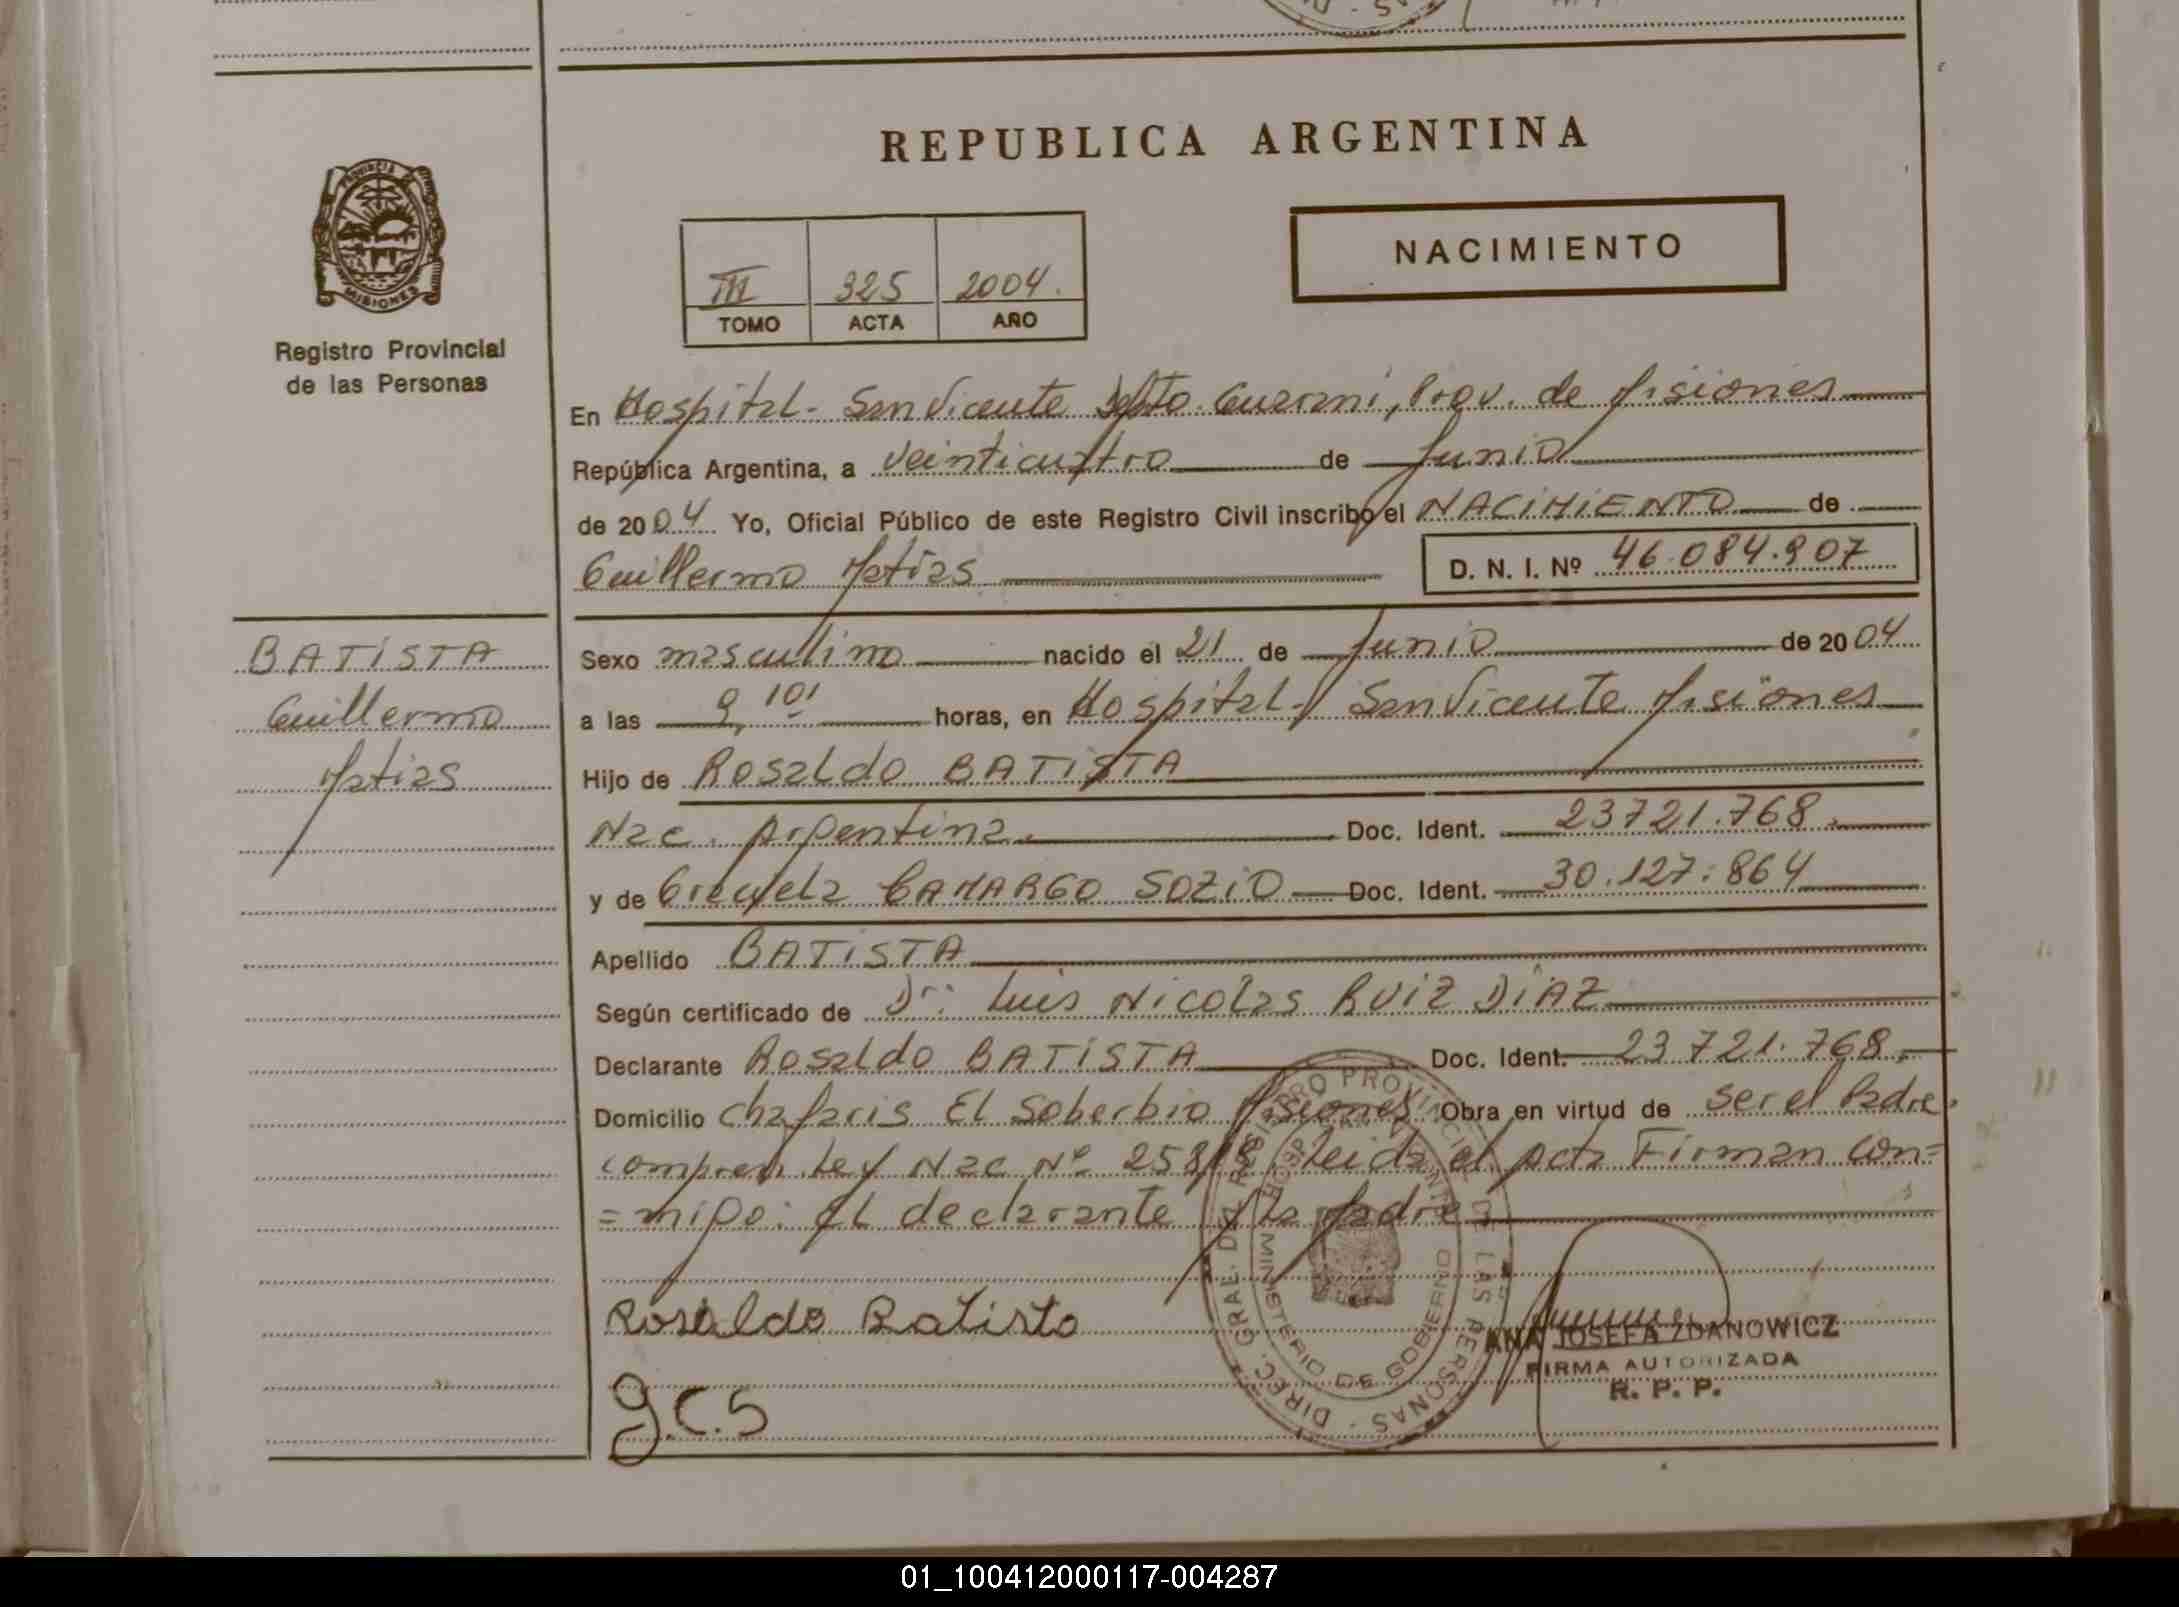 REPUBLICA ARGENTINA
PROVINCIA DE
MISIONES
Registro Provincial
de las Personas
NACIMIENTO
III 325 2004.
TOMO ACTA AÑO
En Hospital - San Vicente Dpto. Guarani, Prov. de Misiones
República Argentina, a veinticuatro de Junio
de 2004 Yo, Oficial Público de este Registro Civil inscribo el NACIMIENTO de
Guillermo Matias
D. N. I. Nº 46.084.907
BATISTA
Guillermo
Matias
Sexo masculino nacido el 21 de Junio de 2004
a las 9,10' horas, en Hospital - San Vicente Misiones
Hijo de Rosaldo BATISTA
Nac. Argentina. Doc. Ident. 23721.768.
y de CAMARGO SOZIO Doc. Ident. 30.127.864
Apellido BATISTA
Según certificado de Dr: Luis Nicolas RUIZ DIAZ
Declarante Rosaldo BATISTA Doc. Ident. 23721.768.
Domicilio El Soberbio Misiones Obra en virtud de ser el Padre.
Ley Nac Nº Leida el acta Firman con=
=migo: el declarante y la Madre
Rosaldo Batista
G.C.S
DIREC. GRAL. DEL REGISTRO PROVINCIAL DE LAS PERSONAS
MINISTERIO DE GOBIERNO
ANA JOSEFA ZDANOWICZ
FIRMA AUTORIZADA
R. P. P.
01_100412000117-004287